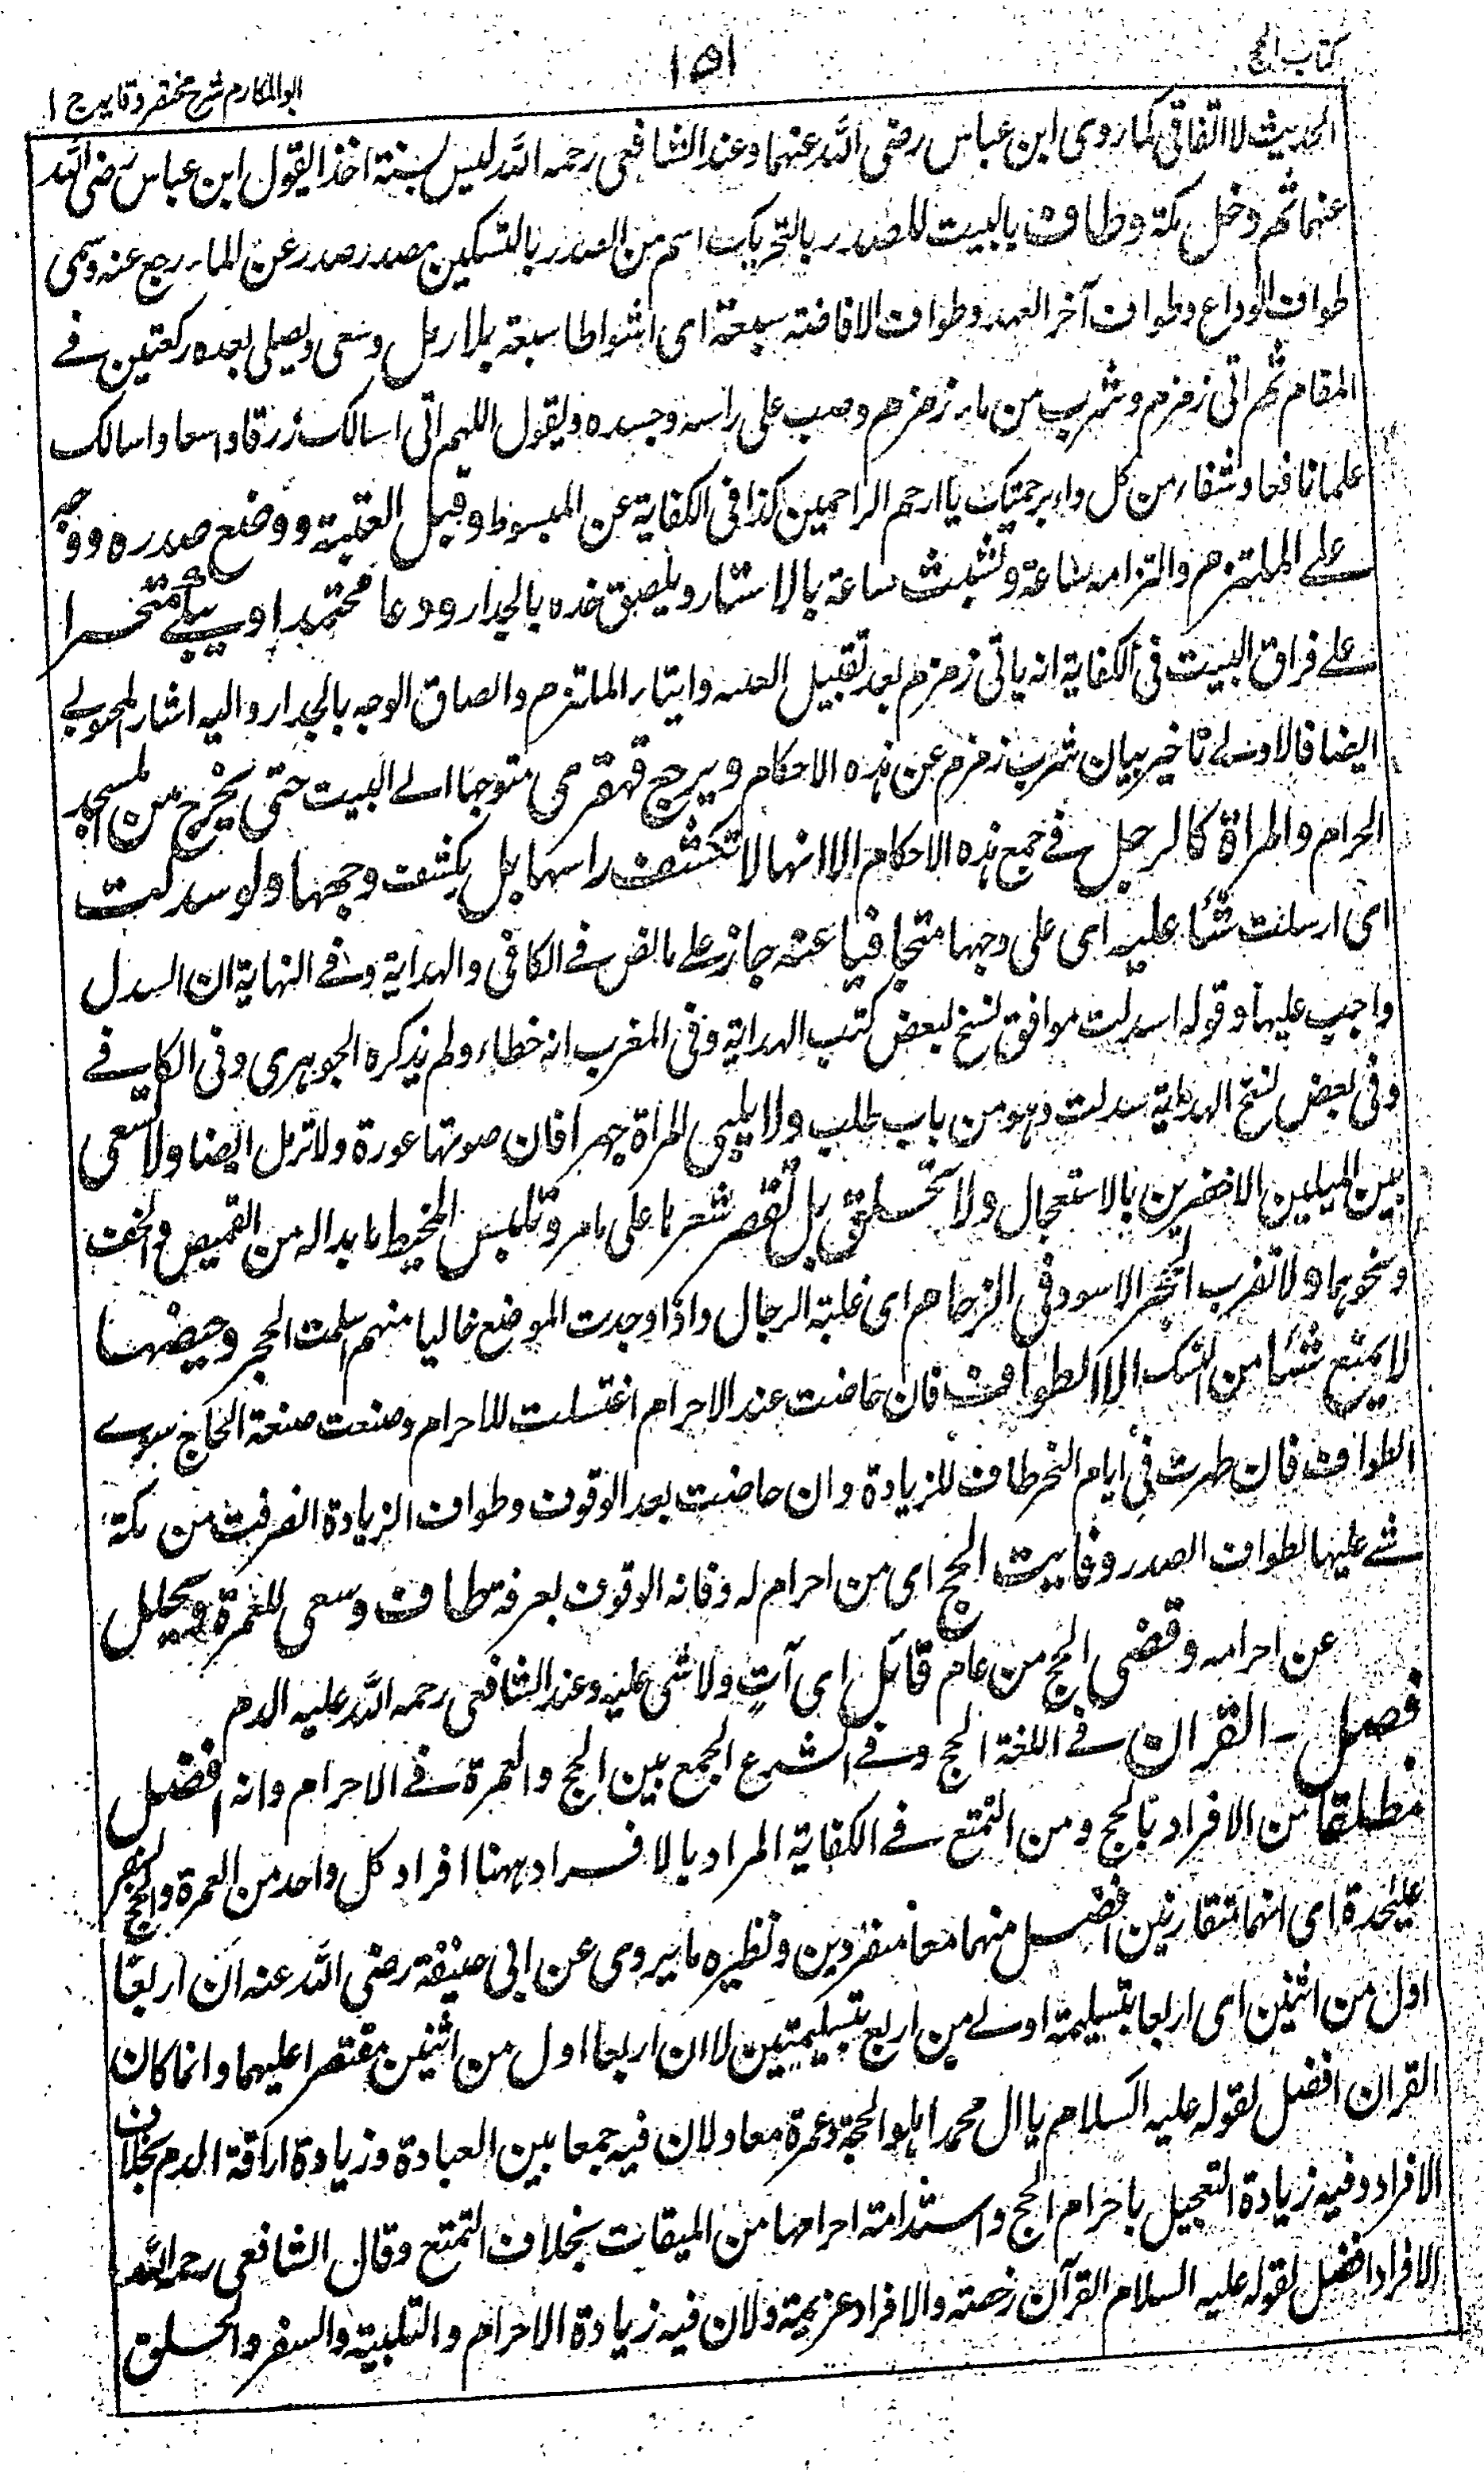 كتاب الحج
١٥١
ابو المكارم شرح مختصر وقايه ج ا
الحديث لا اتفاقى كما روى ابن عباس رضى الله عنهما وعند الشافعى رحمه الله ليس بسنة اخذا لقول ابن عباس رضى الله
عنهما ثم دخل مكة وطاف بالبيت للصدر بالتحريك اسم من الصدر بالتسكين مصدر صدر عن الماء رجع عنه وسمى
طواف الوداع وطواف آخر العهد وطواف الافاضة سبعة اى اشواطا سبعة بلا رمل وسعى ويصلى بعده ركعتين فے
المقام ثم اتى زمزم وشرب من ماء زمزم وصب على راسه وجسده ويقول اللهم انى اسالك رزقا واسعا واسالك
علما نافعا وشفاء من كل داء برحمتك يا ارحم الراحمين كذا فى الكفاية عن المبسوط وقبل العتبة ووضع صدره ووجه
علے الملتزم والتزامه ساعة وتشبث ساعة بالاستار ويلصق خده بالجدار ودعا مجتهدا ويبكے متحسرا
علے فراق البيت فى الكفاية انه ياتى زمزم بعد تقبيل العتبه وايتار الملتزم والصاق الوجه بالجدار واليه اشار المحبوبے
ايضا فالاولے تاخير بيان شرب زمزم عن هذه الاحكام ويرجع قهقرى متوجها الے البيت حتى يخرج من المسجد
الحرام والمراة كالرجل فے جمع هذه الاحكام الا انها لا تكشف راسها بل يكشف وجهها ولو سدلت
اى ارسلت شئا عليه اى على وجهها متجافيا عنه جاز علے ما نص فے الكافى والهداية وفے النهاية ان السدل
واجب عليها وقوله اسدلت موافق لنسخ بعض كتب الهداية وفى المغرب انه خطاء ولم يذكره الجوهرى وفى الكافے
وفى بعض نسخ الهداية سدلت وهو من باب طلب ولا يلبى المراة جهرا فان صوتها عورة ولا ترمل ايضا ولا تسعى
بين الميلين الاخضرين بالاستعجال ولا تحلق بل تقصر شعرها على ما مر وتلبس المخيط ما بدا له من القميص والخف
ونحوهما ولا تقرب الحجر الاسود فى الزحام اى غلبة الرجال واذا وجدت الموضع خاليا منهم اسلمت الحجر وحيضها
لا يمنع شئا من النسك الا الطواف فان حاضت عند الاحرام اغتسلت للاحرام وصنعت صنعة الحاج سوے
الطواف فان طهرت فى ايام النحر طاف للزيادة وان حاضت بعد الوقوف وطواف الزيادة انصرفت من مكة
شے عليها لطواف الصدر وفايت الحج اى من احرام له وفاته الوقوف بعرفة طاف وسعى للعمرة ويحلل
عن احرامه وقضى الحج من عام قابل اى آت ولا شى عليه وعند الشافعى رحمه الله عليه الدم
فصل - القران فے اللغة الحج وفے الشرع الجمع بين الحج والعمرة فے الاحرام وانه افضل
مطلقا من الافراد بالحج ومن التمتع فے الكفاية المراد بالافراد ههنا افراد كل واحد من العمرة والحج بسفر
عليحدة اى انهما متقارنين افضل منهما معا منفردين ونظيره ما يروى عن ابى حنيفة رضى الله عنه ان اربعا
اول من اثنين اى اربعا بتسليمة اولے من اربع بتسليمتين لا ان اربعا اول من اثنين مقتصرا عليهما وانما كان
القران افضل لقوله عليه السلام يا ال محمد اهلوا بحجة وعمرة معا ولان فيه جمعا بين العبادة وزيادة اراقة الدم بخلاف
الافراد وفيه زيادة التعجيل باحرام الحج واستدامة احرامها من الميقات بخلاف التمتع وقال الشافعى رحمه الله
الافراد افضل لقوله عليه السلام القرآن رخصته والافراد عزيمة ولان فيه زيادة الاحرام والتلبية والسفر والحلق